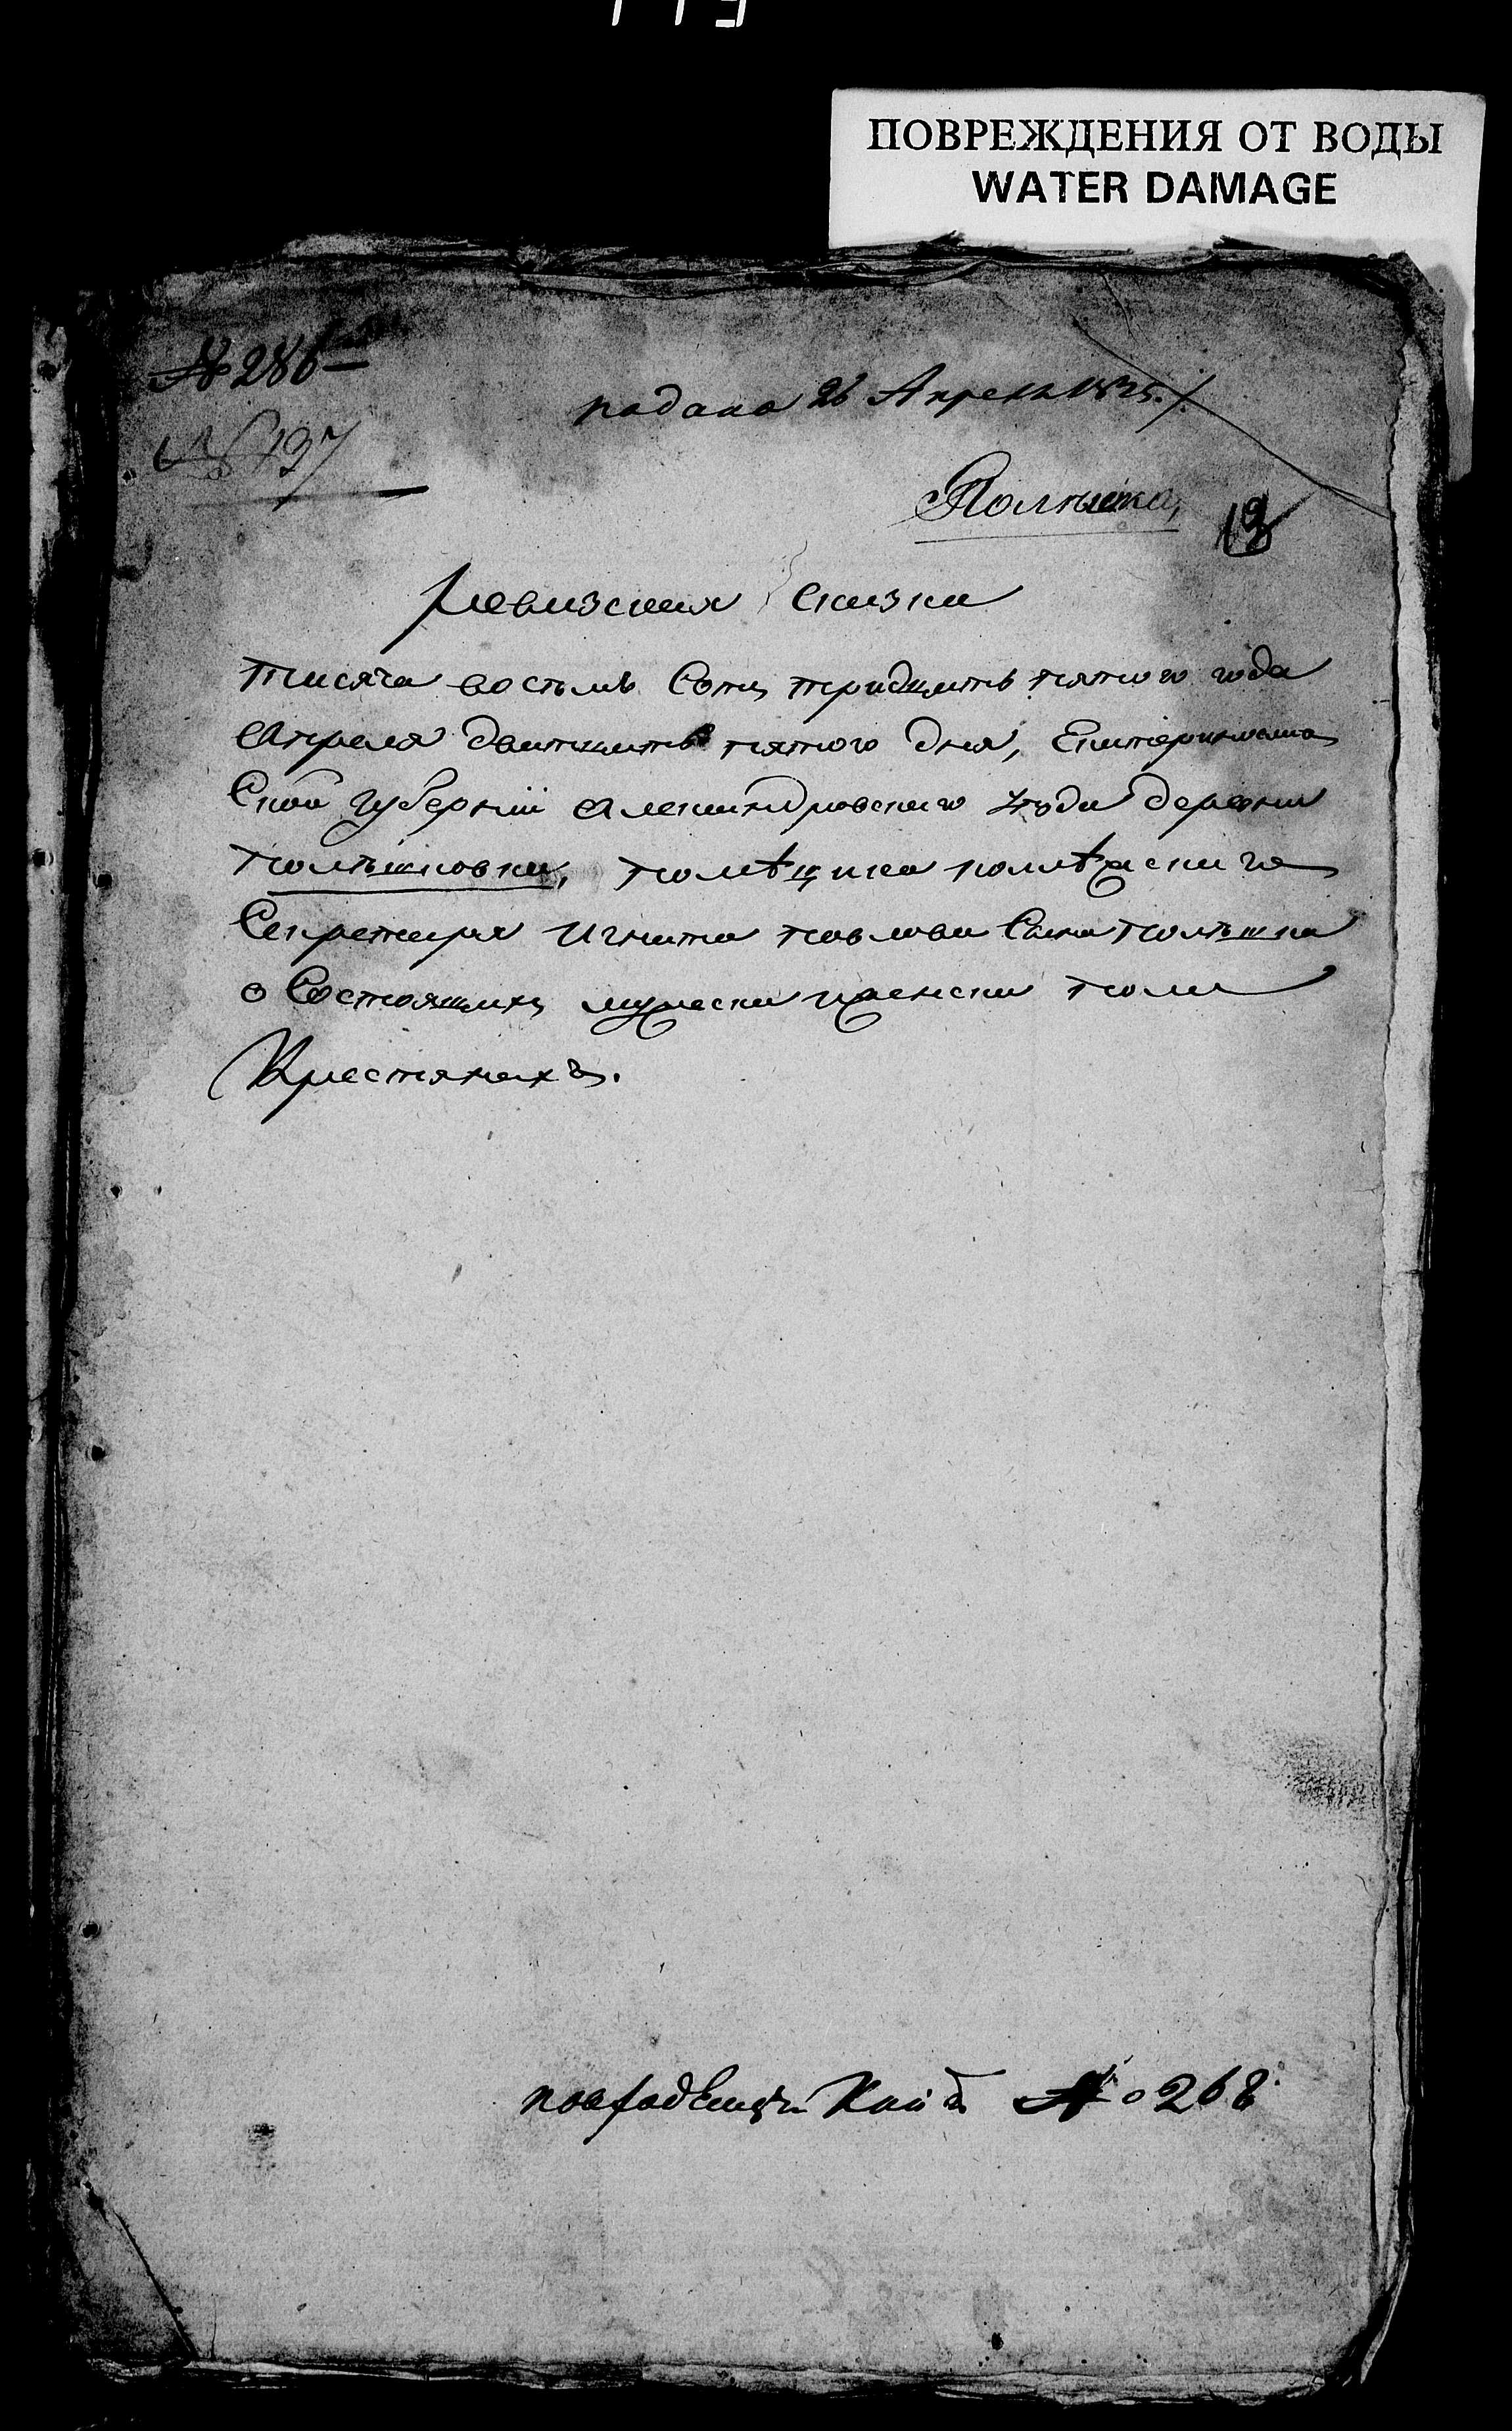 ПОВРЕЖДЕНИЯ ОТ ВОДЫ
WATER DAMAGE
№ 286
№ 197
подана 26 Апреля 1835.
Полтьшка,
Ревизския сказки
тисяча восъмь Сотъ тридцать пятого года
Апреля дватцать пятого дня, Екатеринослав
Ской губерніи Александровскаго уъзда деревни
полтьшковки, помѣщика колѣжскаго
Секретаря Игната павлова Сына полтьшка
о Состоящихъ мужеска и женска пола
Крестянехъ.
№ 268